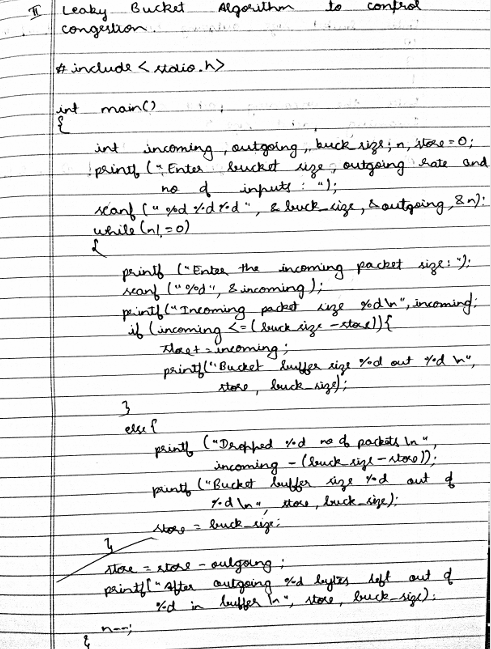 II Leaky Bucket Algorithm to control
congestion.
# include < stdio.h>
int main()
{
int incoming, outgoing, buck size; n, store = 0;
printf ("Enter bucket size, outgoing rate and
no of inputs : ");
scanf (" %d %d %d", & buck_size, & outgoing, &n);
while (n! = 0)
{
printf ("Enter the incoming packet size: ");
scanf ("%d", & incoming);
printf("Incoming packet size %d\n", incoming);
if (incoming <= (buck size - store)){
store + = incoming;
printf("Bucket buffer size %d out %d \n",
store, buck_size);
}
else {
printf ("Dropped %d no of packets \n",
incoming - (buck_size - store));
printf ("Bucket buffer size %d out of
%d \n", store, buck_size);
store = buck_size;
}
store = store - outgoing;
printf("After outgoing %d bytes left out of
%d in buffer \n", store, buck_size);
n--;
}